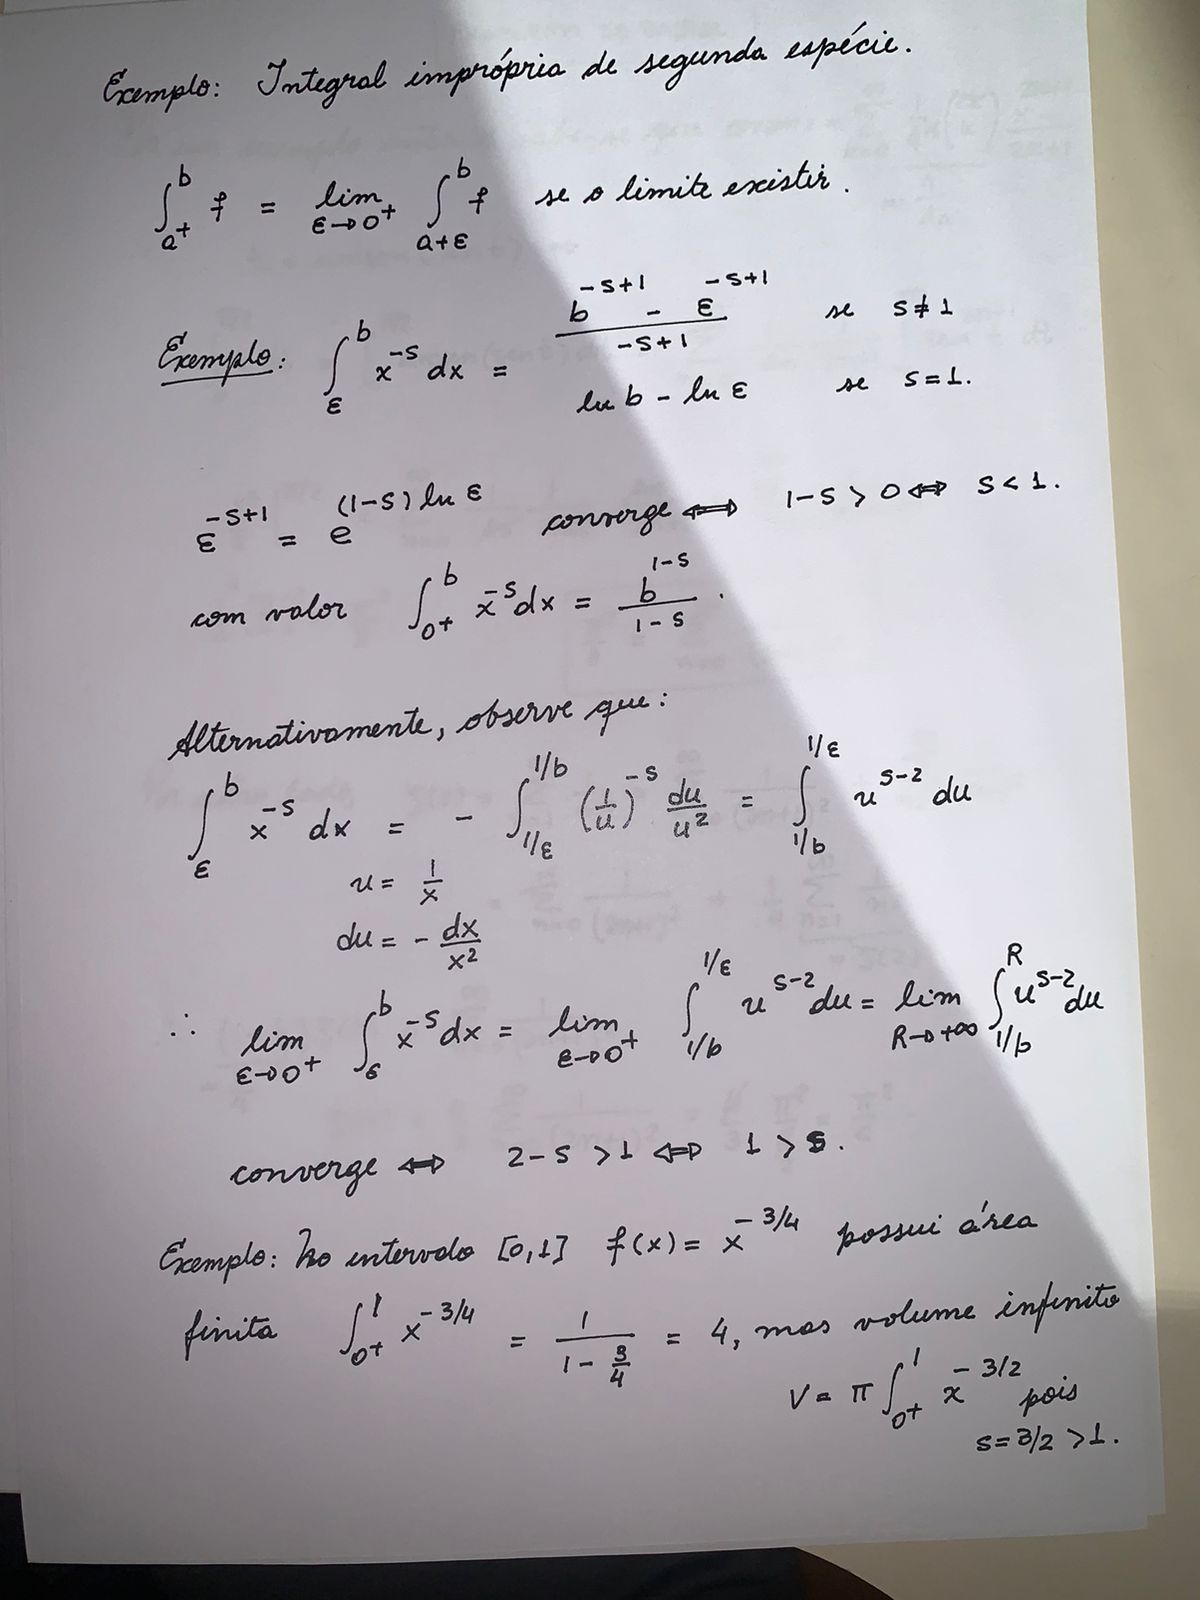 Exemplo: Integral imprópria de segunda espécie.
∫_{a+}^{b} f = lim_{ε→0+} ∫_{a+ε}^{b} f se o limite existir.
Exemplo: ∫_{ε}^{b} x^{-s} dx = (b^{-s+1} - ε^{-s+1})/(-s+1) se s≠1
ln b - ln ε se s=1.
ε^{-s+1} = e^{(1-s) ln ε} converge ⇔ 1-s > 0 ⇔ s < 1.
com valor ∫_{0+}^{b} x^{-s} dx = b^{1-s}/(1-s).
Alternativamente, observe que:
∫_{ε}^{b} x^{-s} dx = - ∫_{1/ε}^{1/b} (1/u)^{-s} du/u^2 = ∫_{1/b}^{1/ε} u^{s-2} du
u = 1/x
du = - dx/x^2
∴ lim_{ε→0+} ∫_{ε}^{b} x^{-s} dx = lim_{ε→0+} ∫_{1/b}^{1/ε} u^{s-2} du = lim_{R→+∞} ∫_{1/b}^{R} u^{s-2} du
converge ⇔ 2-s > 1 ⇔ 1 > s.
Exemplo: No intervalo [0,1] f(x) = x^{-3/4} possui área
finita ∫_{0+}^{1} x^{-3/4} = 1/(1 - 3/4) = 4, mas volume infinito
V = π ∫_{0+}^{1} x^{-3/2} pois
s = 3/2 > 1.